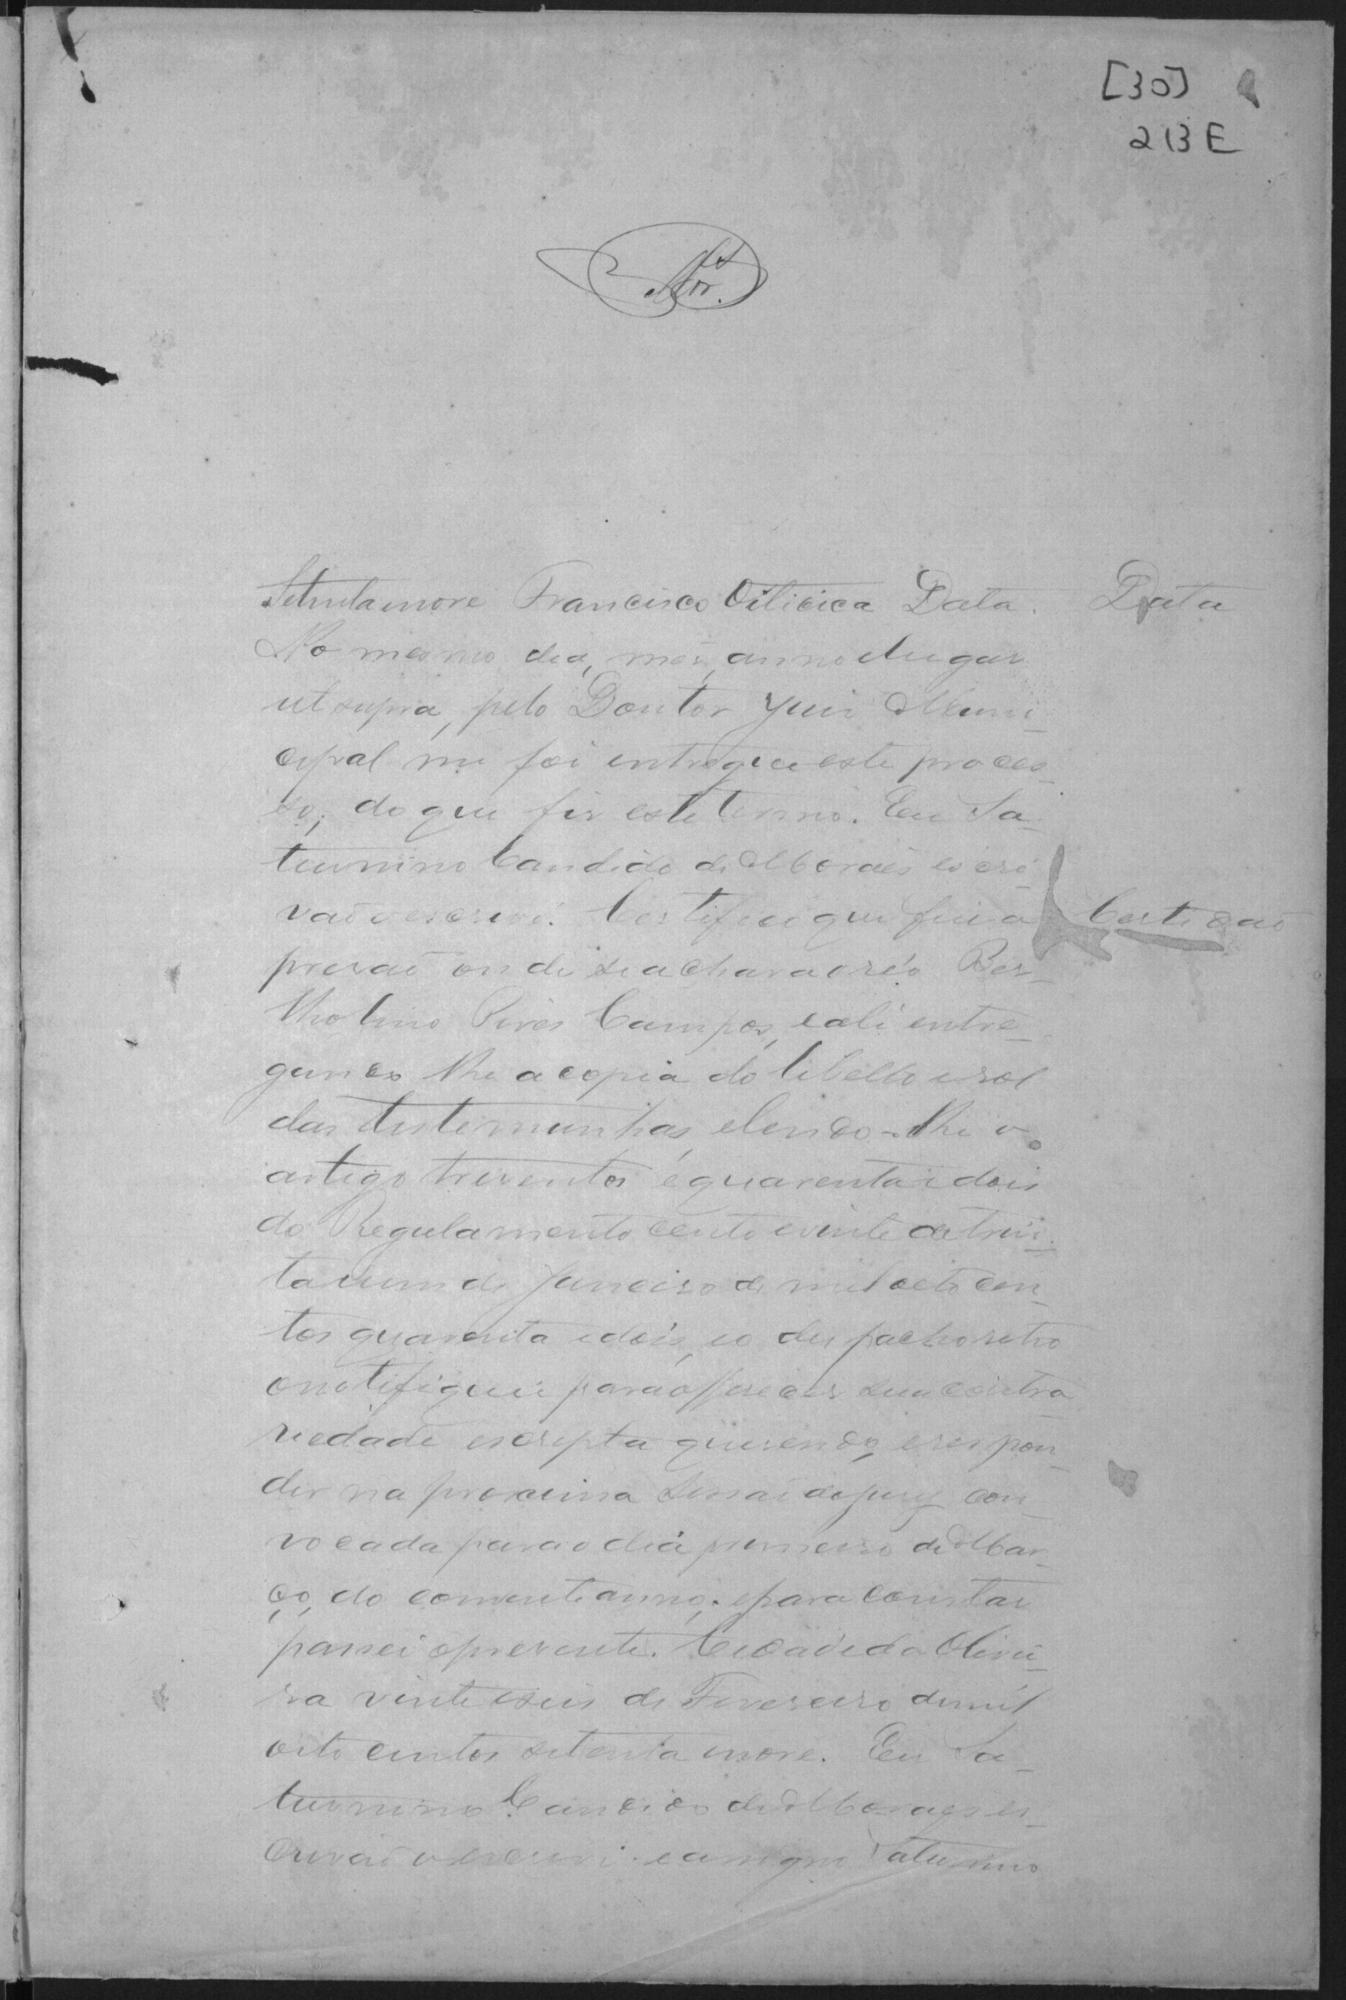 [30]
213 E
Setenta nove Francisco Oiticica Data. Data
No mesmo dia, mes, anno elugar
utsupra, pelo Doutor Juiz Muni-
cipal me foi entregue este proces-
so; do que fiz este termo. Eu Sa-
turnino Candido de Moraes escri-
vão o escrevi. Certifico que fui a Certidão
prezaõ onde se achava o réo Ber-
tholino Pires Campos, eali entre-
guei lhe acopia do libello erol
das testemunhas, elendo-lhe o
artigo trezentos equarenta e dois
do Regulamento cento evinte de trin-
ta eum de Janeiro de mil oito cen-
tos quarenta edois, eo despacho retro
onotifiquei para offerecer sua contra
riedade escripta querendo, erespon-
der na proxima sessaõ dojury con-
vocada para o dia primeiro de Mar-
ço, do corrente anno; epara constar
passei opresente. Cidade da Olivei-
ra vinte eseis de Fevereiro demil
oito centos setenta enove. Eu Sa-
turnino Candido de Moraes es-
crivaõ o escrevi e assigno Saturnino